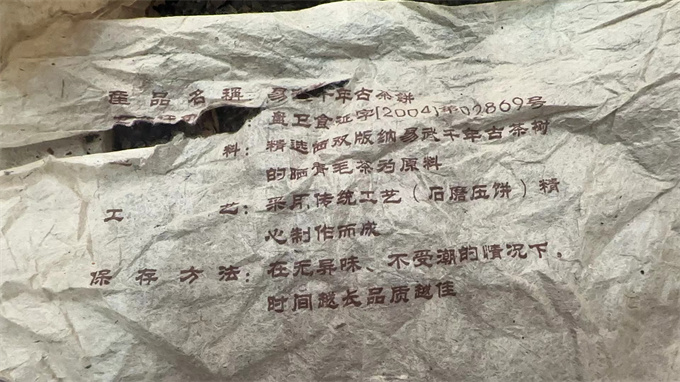 産品名稱：易武千年古茶餅
卫食证字[2004]第02869号
料：精选西双版纳易武千年古茶树
的晒青毛茶为原料
工艺：采用传统工艺（石磨压饼）精
心制作而成
保存方法：在无异味、不受潮的情况下。
时间越长品质越佳